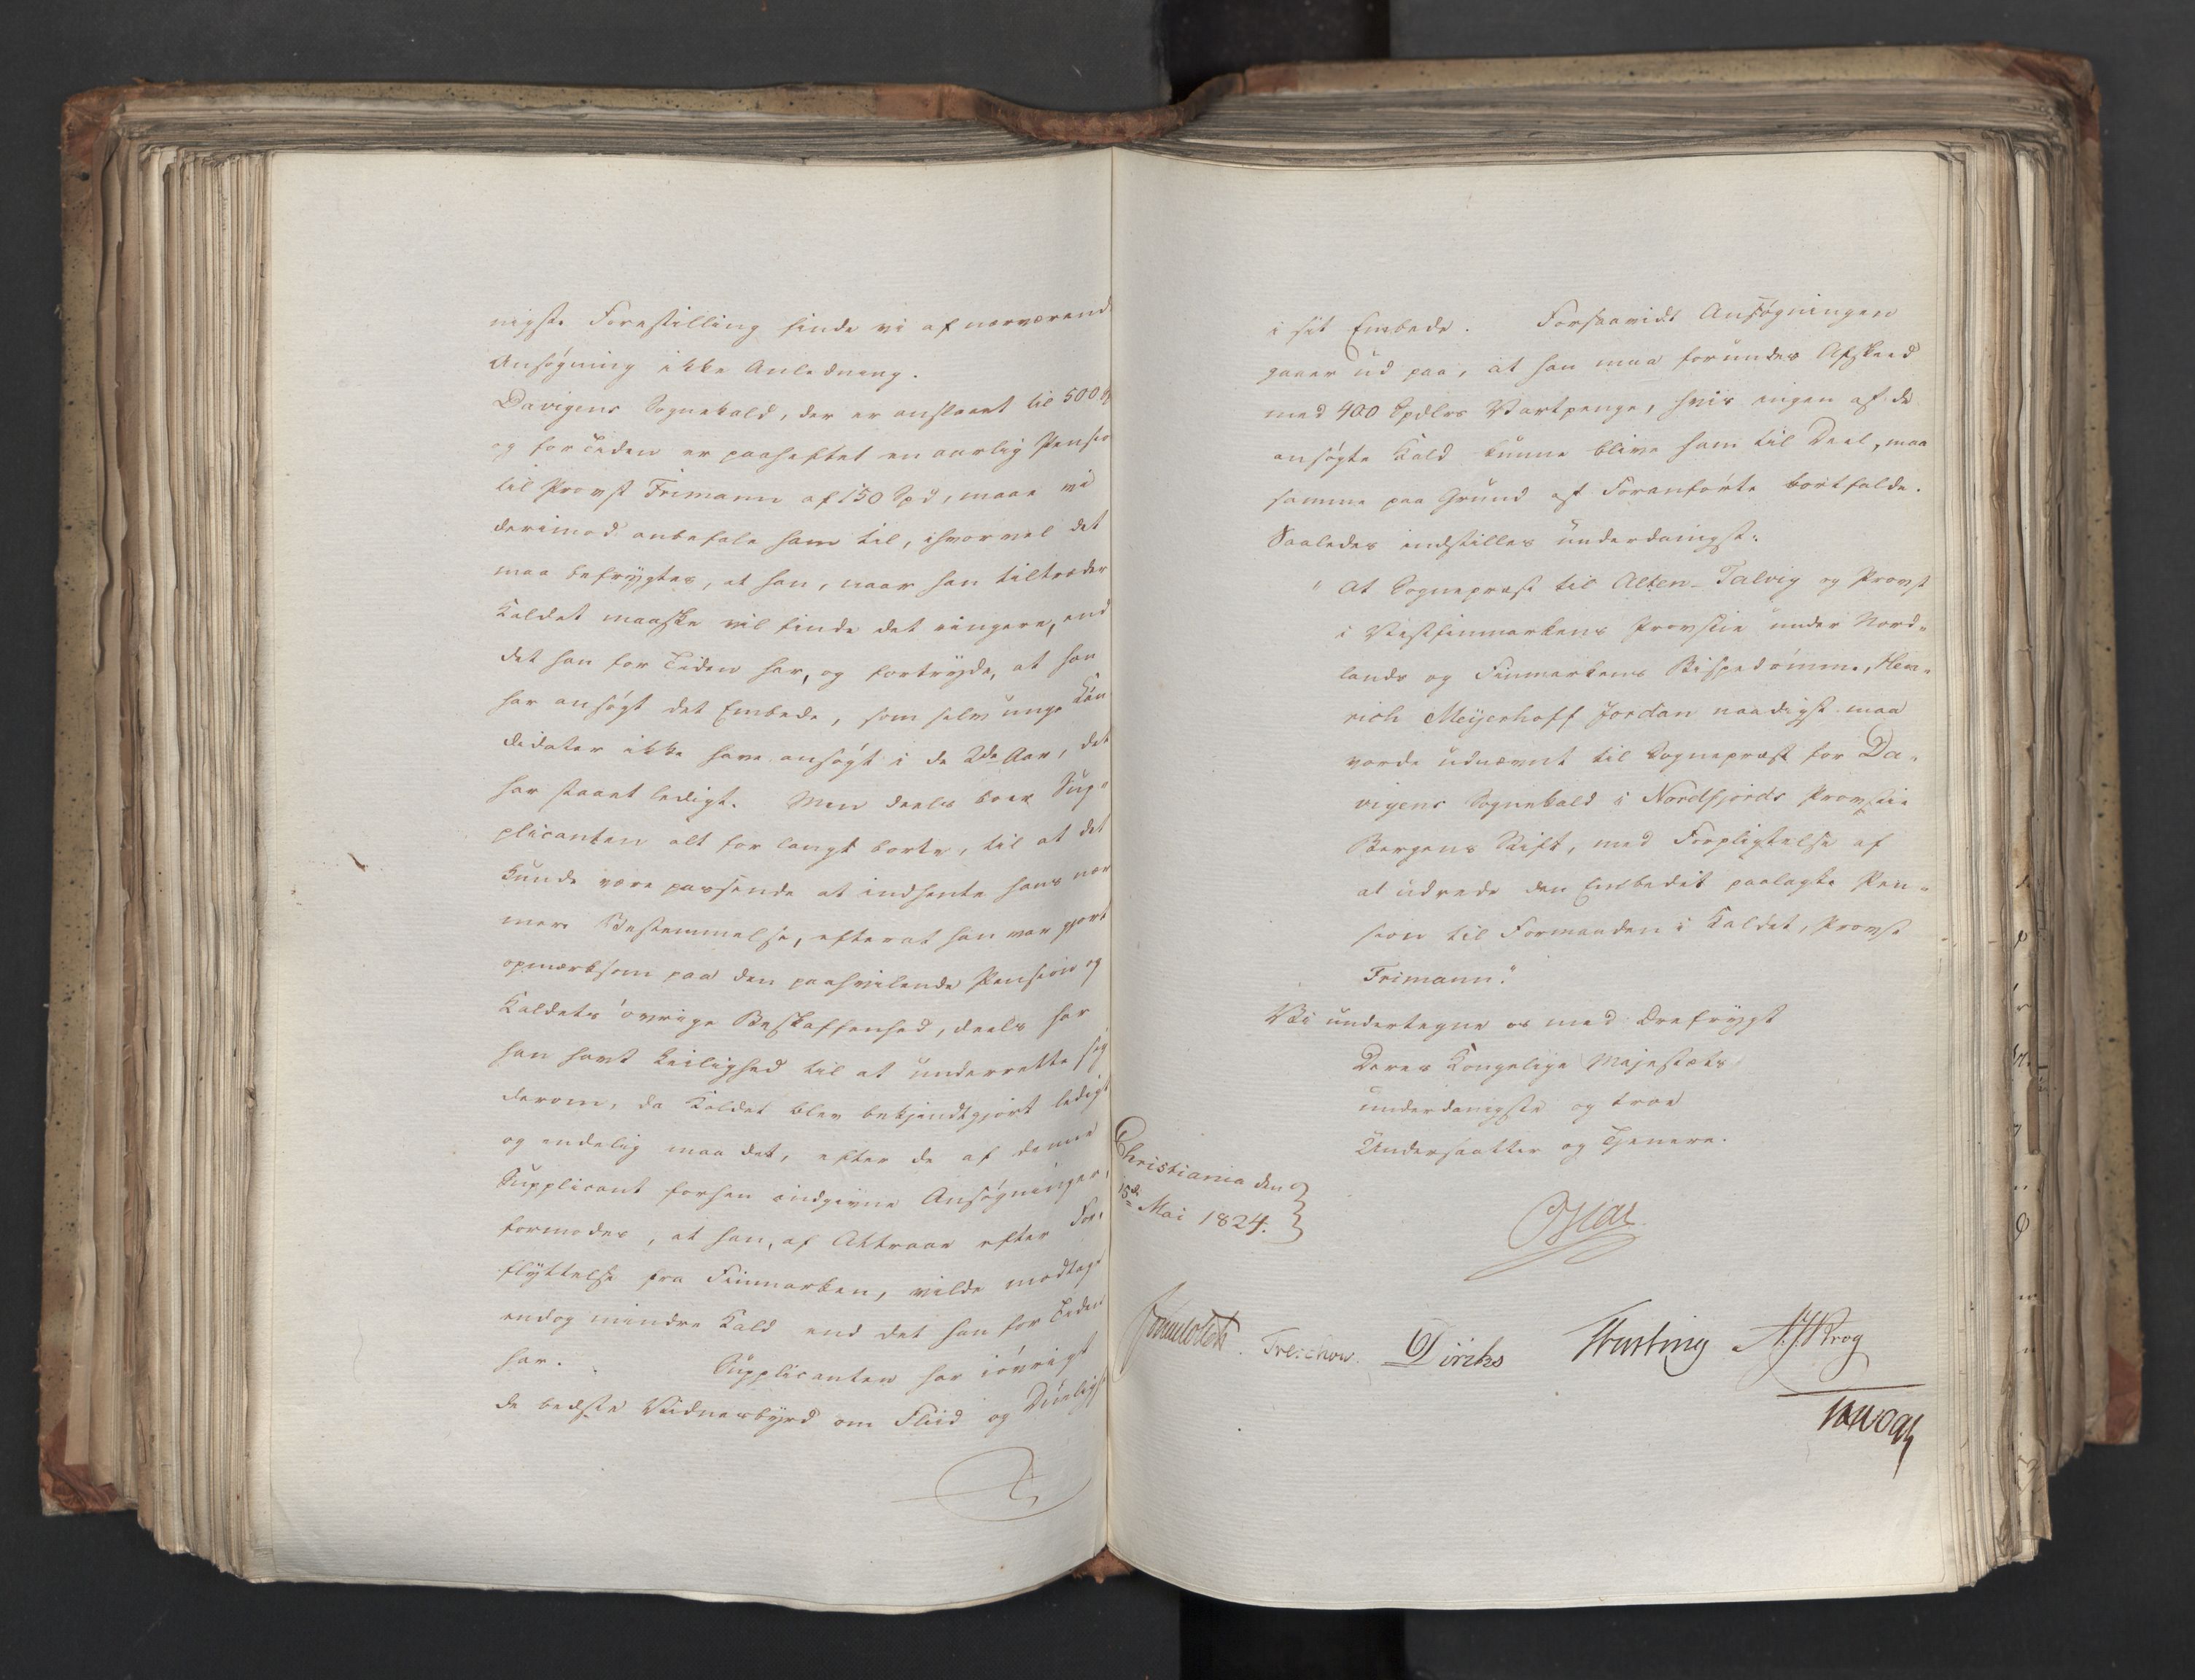 nigste Forestilling finde vi af nærværende
Ansøgning ikke Anledning.
Davigens Sognekald, der er anslaaet til 500
og for Tiden er paaheftet en aarlig Pensio
til Provst Frimann af 150 Spd, maae vi
derimod anbefale ham til, ihvorvel det
maa befrygtes, at han, naar han tiltræder
Kaldet maaskee vil finde det ringere, end
det han for Tiden har, og fortryde, at han
har ansøgt det Embede, som selv unge Kan
didater ikke have ansøgt i de 2de Aar, det
har staaet ledigt. Men deels boer Sup-
plicanten alt for langt borte, til at det
kunde være passende at indhente hans nær
mere Bestemmelse, efterat han var gjort
opmærksom paa den paahvilende Pension og
Kaldets øvrige Beskaffenhed, deels har
han havt Leilighed til at underrette sig
derom, da Kaldet blev bekjendtgjort ledigt
og endelig maa det, efter de af denne
Supplicant forhen indgivne Ansøgninger,
formodes, at han, af Attraae efter For-
flyttelse fra Finmarken, vilde modtage
endog mindre Kald end det han for Tiden
har. Supplicanten har iøvrigt
de bedste Vidnesbyrd om Fliid og Duelighed
i sit Embede. Forsaavidt Ansøgningen
gaaer ud paa, at han maa forundes Afskeed
med 400 Spdlrs Vartpenge, hvis ingen af de
ansøgte Kald kunne blive ham til Deel, maa
samme paa Grund af Foranførte bortfalde.
Saaledes indstilles underdanigst:
" At Sognepræst til Alten-Talvig og Provst
i Vestfinmarkens Provstie under Nord-
lands og Finmarkens Bispedømme, Hen-
rich Meyerhoff Jordan naadigst maa
vorde udnævnt til Sognepræst for Da-
vigens Sognekald i Nordfjords Provstie
Bergens Stift, med Forpligtelse af
at udrede den Embedet paalagte Pen-
sion til Formanden i Kaldet, Provst
Frimann."
Vi undertegne os med Ærefrygt
Deres Kongelige Majestæts
underdanigste og troe
Undersaatter og Tjenere.
Christiania den
15de Mai 1824.
Oscar
Treschow. Diriks